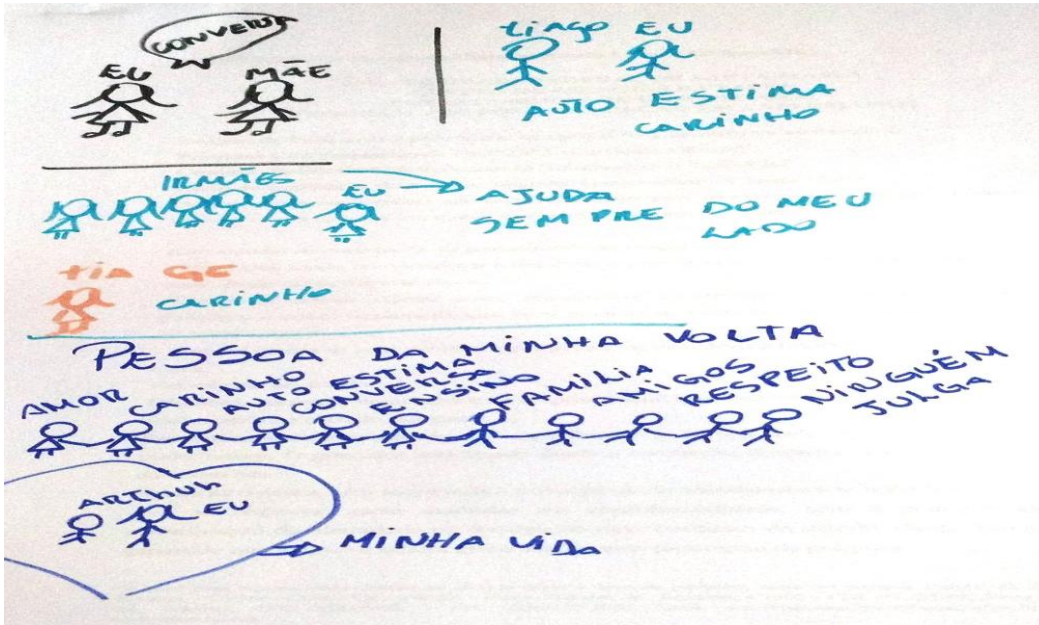 CONVERSA
EU MÃE
tiAgo EU
AUTO ESTIMA
CARINHO
IRMÃES
EU
AJUDA
SEMPRE DO MEU
LADO
tiA GE
CARINHO
PESSOA DA MINHA VOLTA
AMOR CARINHO AUTO ESTIMA CONVERSA ENSINO FAMÍLIA AMIGOS RESPEITO NINGUÉM JULGA
ARTHUR
EU
MINHA VIDA